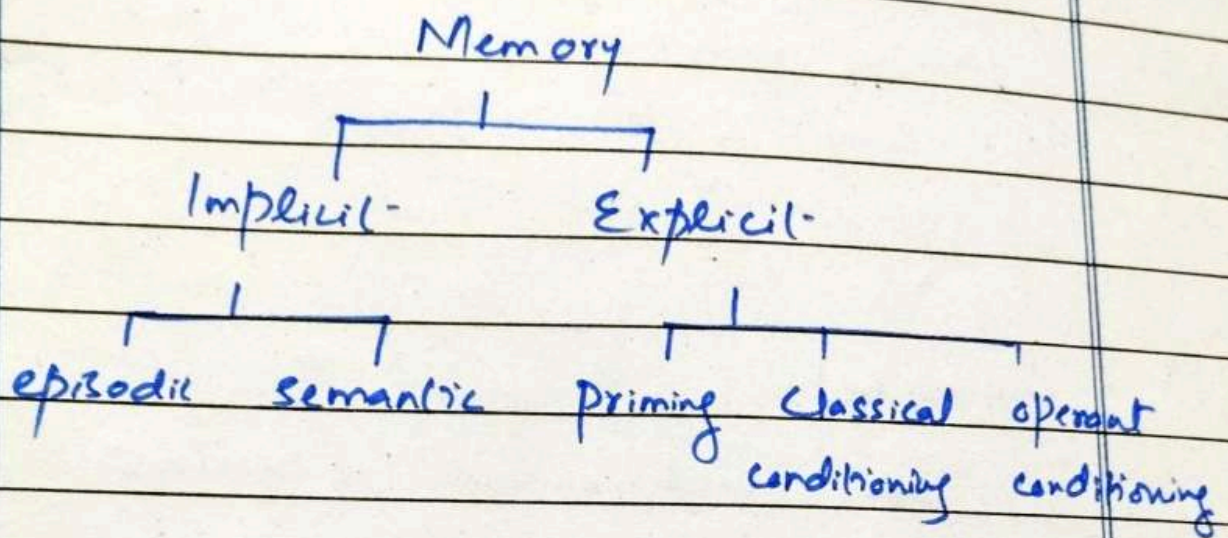 Memory
Implicit Explicit
episodic semantic Priming Classical operant
conditioning conditioning